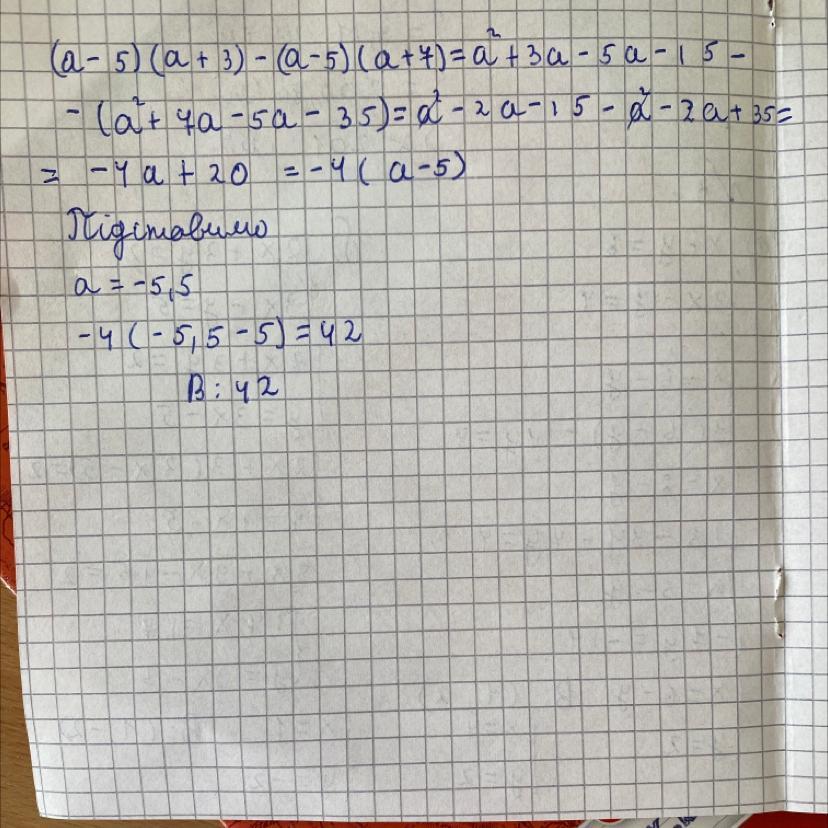 (a - 5)(a + 3) - (a - 5)(a + 7) = a² + 3a - 5a - 15 -
- (a² + 7a - 5a - 35) = a² - 2a - 15 - a² - 2a + 35 =
= -4a + 20 = -4(a - 5)
Підставимо
a = -5,5
-4(-5,5 - 5) = 42
В: 42